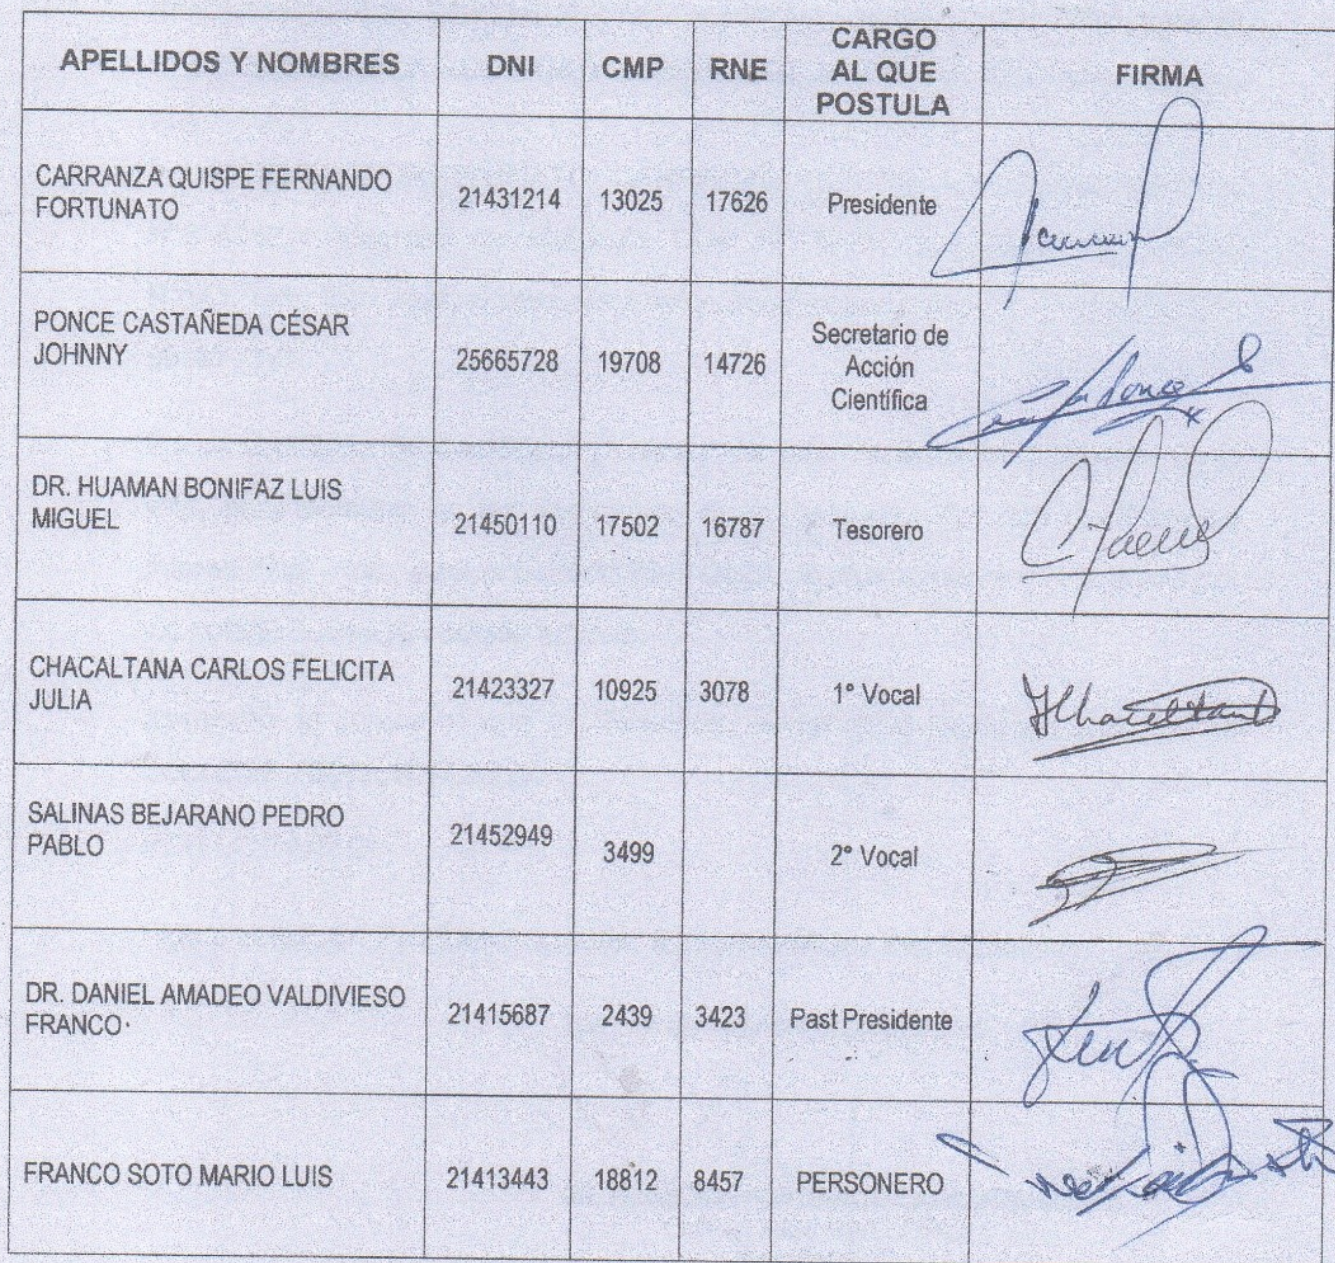 APELLIDOS Y NOMBRES DNI CMP RNE CARGO AL QUE POSTULA FIRMA
CARRANZA QUISPE FERNANDO
FORTUNATO
21431214 13025 17626 Presidente
PONCE CASTAÑEDA CÉSAR
JOHNNY
25665728 19708 14726 Secretario de
Acción
Científica
DR. HUAMAN BONIFAZ LUIS
MIGUEL
21450110 17502 16787 Tesorero
CHACALTANA CARLOS FELICITA
JULIA
21423327 10925 3078 1° Vocal
SALINAS BEJARANO PEDRO
PABLO
21452949 3499 2° Vocal
DR. DANIEL AMADEO VALDIVIESO
FRANCO
21415687 2439 3423 Past Presidente
FRANCO SOTO MARIO LUIS 21413443 18812 8457 PERSONERO